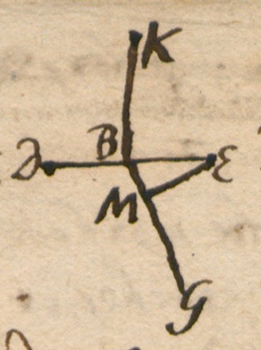 K
B
D E
M
G